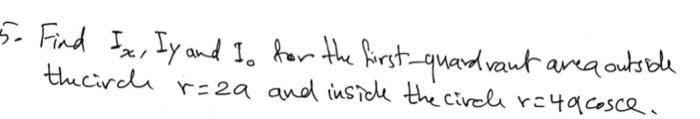 5- Find Ix, Iy and Io for the first-quardvant area outside
the circle r=2a and inside the circle r=4a cosθ.